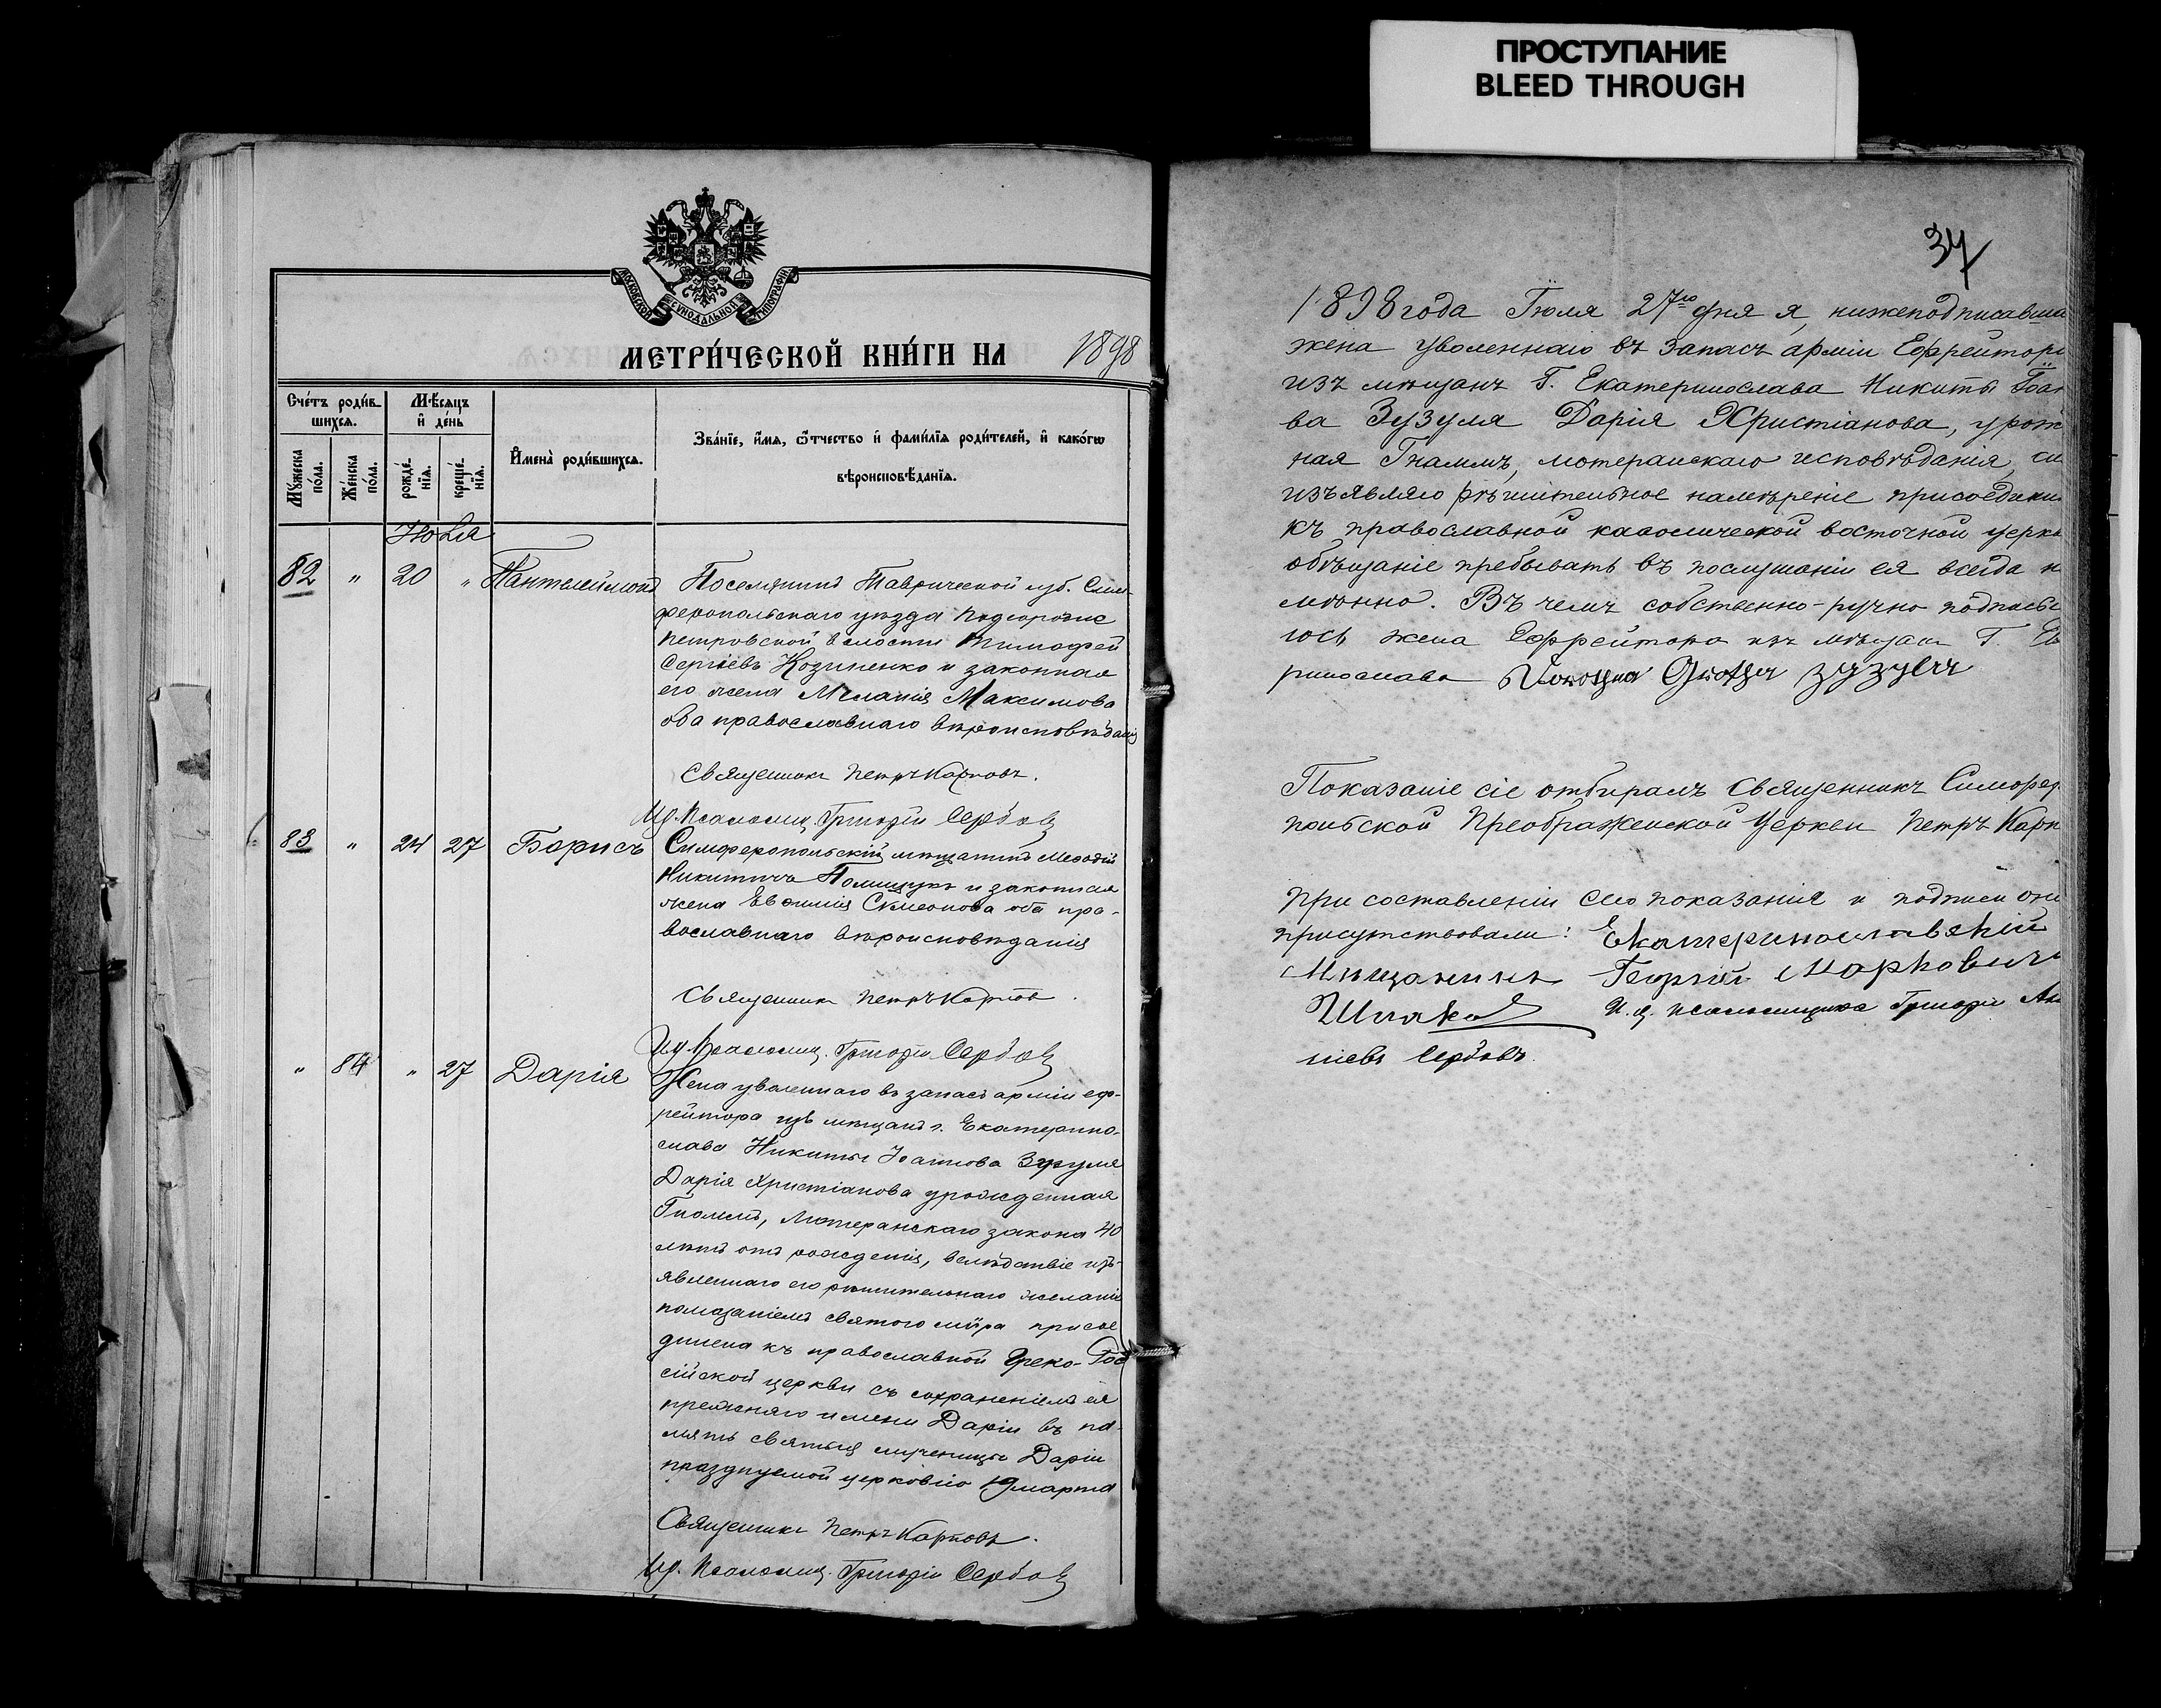 ПРОСТУПАНИЕ
BLEED THROUGH
МОСКОВСКОЙ СѴНОДАЛЬНОЙ ТИПОГРАФІИ
МЕТРИ́ЧЕСКОЙ КНИ́ГИ НА 1898
Сче́тъ роди́в-
шихсѧ.
Мѣ́сѧцъ
и҆ де́нь
Мꙋ́жеска
по́ла.
Же́нска
по́ла.
рожде́-
нїѧ.
креще́-
нїѧ.
И҆мена̀ роди́вшихсѧ.
Зва́нїе, и҆́мѧ, ѻ҆́тчество и҆ фами́лїѧ роди́телей, и҆ како́гѡ
вѣроисповѣ́данїѧ.
Июля
82 " 20 " Пантелеймонъ
Поселянинъ Таврической губ. Сим-
феропольскаго уѣзда Подгородне
Петровской волости Тимофей
Сергіевъ Козиненко и законная
его жена Меланія Максимова
оба православнаго вѣроисповѣданія
Священникъ Петръ Карповъ.
Ид. Псаломщ. Григорій Сербовъ
83 " 24 27 Борисъ
Симферопольскій мѣщанинъ Меѳодій
Никитичъ Полищукъ и законная
жена Евфимія Симеонова оба пра-
вославнаго вѣроисповѣданія
Священникъ Петръ Карповъ.
Ид. Псаломщ. Григорій Сербовъ
" 84 " 27 Дарія
Жена уволеннаго въ запасъ арміи еф-
рейтора изъ мѣщанъ г. Екатерино-
слава Никиты Іоаннова Зузуля
Дарія Христіанова урожденная
Лютеранскаго закона 40
лѣтъ отъ рожденія, вслѣдствіе изъ-
явленнаго его рѣшительнаго желанія
помазаніемъ святого мѵра присое
динена къ православной Греко-Рос
сійской церкви съ сохраненіемъ ея
прежняго имени Дарія въ па-
мять святыя мученицы Даріи
празднуемой церковію 19 марта
Священникъ Петръ Карповъ.
Ид. Псаломщ. Григорій Сербовъ
34
1898 года Іюля 27го дня я, нижеподписавша
жена уволеннаго въ запасъ арміи Ефрейтора
изъ мѣщанъ Г. Екатеринослава Никиты Іоан
ва Зузуля Дарія Христіанова, урож
ная лютеранскаго исповѣданія, си
изъявляю рѣшительное намѣреніе присоедини
къ православной каѳолической восточной церк
обѣщаніе пребывать въ послушаніи ея всегда н
мѣнно. Въ чемъ собственно-ручно подписы
юсь жена Ефрейтора изъ мѣщанъ Г. Ек
ринослава Зузуля
Показаніе сіе отбиралъ Священникъ Симфер
польской Преображенской Церкви Петръ Карп
При составленіи сего показанія и подписи он
присутствовали: Екатеринославскій
Мѣщанинъ Георгій Марковичъ
И. д. псаломщика Григорій Ан
ніевъ Сербовъ.